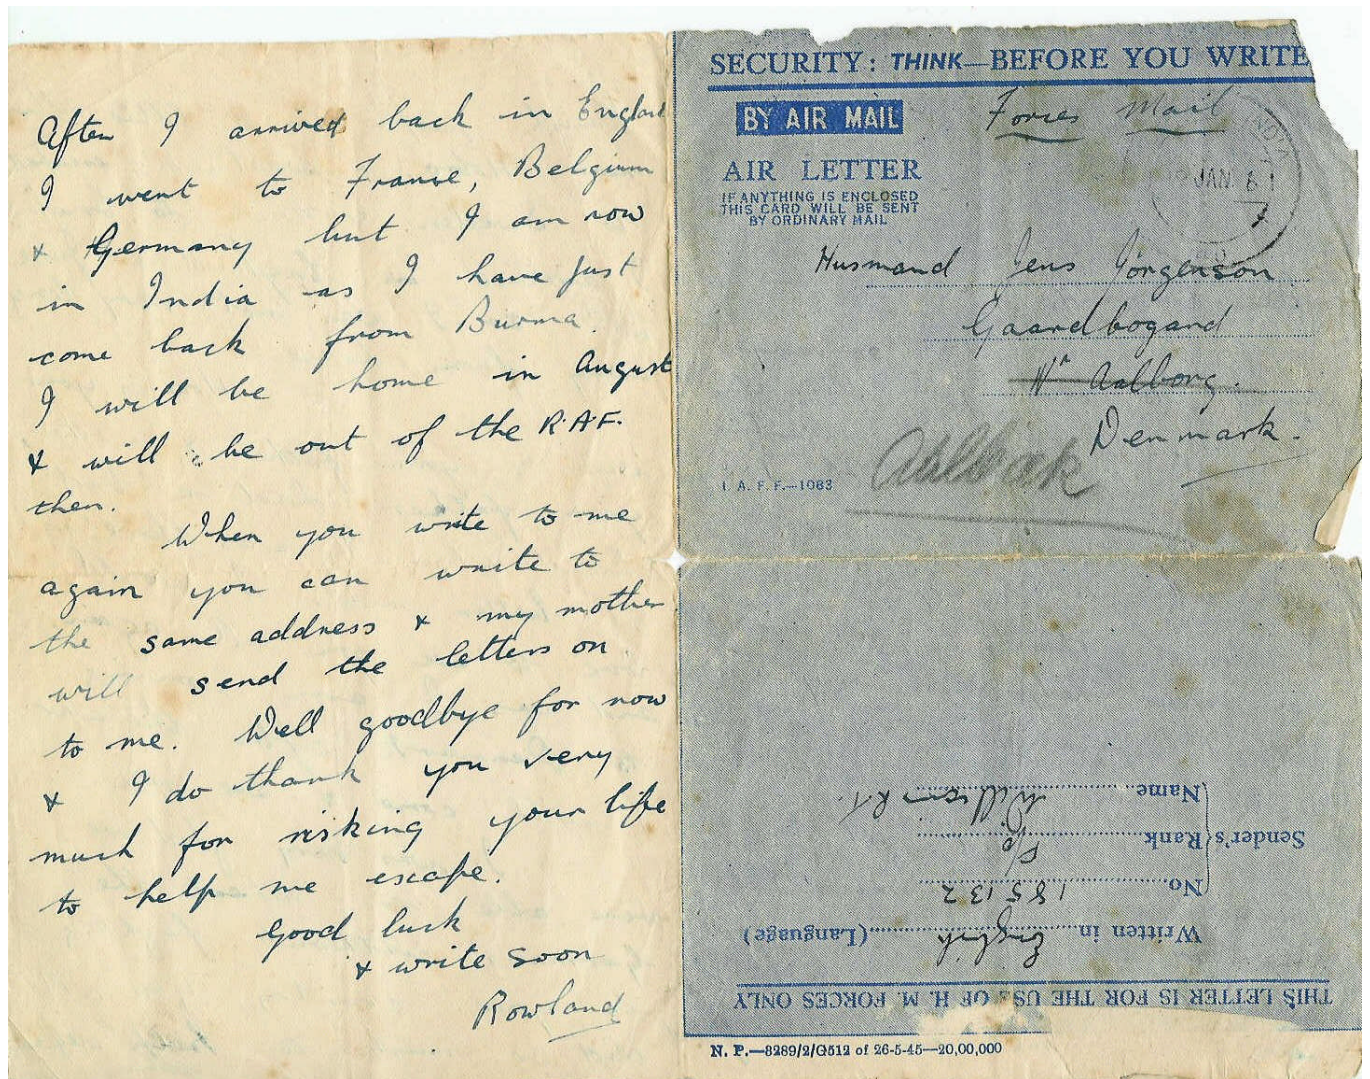 After I arrived back in England
I went to France, Belgium
& Germany but I am now
in India as I have just
come back from Burma.
I will be home in August
& will be out of the R.A.F.
then.
When you write to me
again you can write to
the same address & my mother
will send the letters on
to me. Well goodbye for now
& I do thank you very
much for risking your life
to help me escape.
Good luck
& write soon
Rowland
SECURITY: THINK—BEFORE YOU WRITE
BY AIR MAIL
Forces Mail
AIR LETTER
IF ANYTHING IS ENCLOSED
THIS CARD WILL BE SENT
BY ORDINARY MAIL
JAN. 6
Husmand Jens Jörgenson
Gaardbogaard
Nr Aalborg.
Denmark.
Aalbæk
I. A. F. F.—1083
THIS LETTER IS FOR THE USE OF H. M. FORCES ONLY
Written in English (Language)
Sender's
No. 185132
Rank F/O
Name
N. P.—8289/2/G512 of 26-5-45—20,00,000